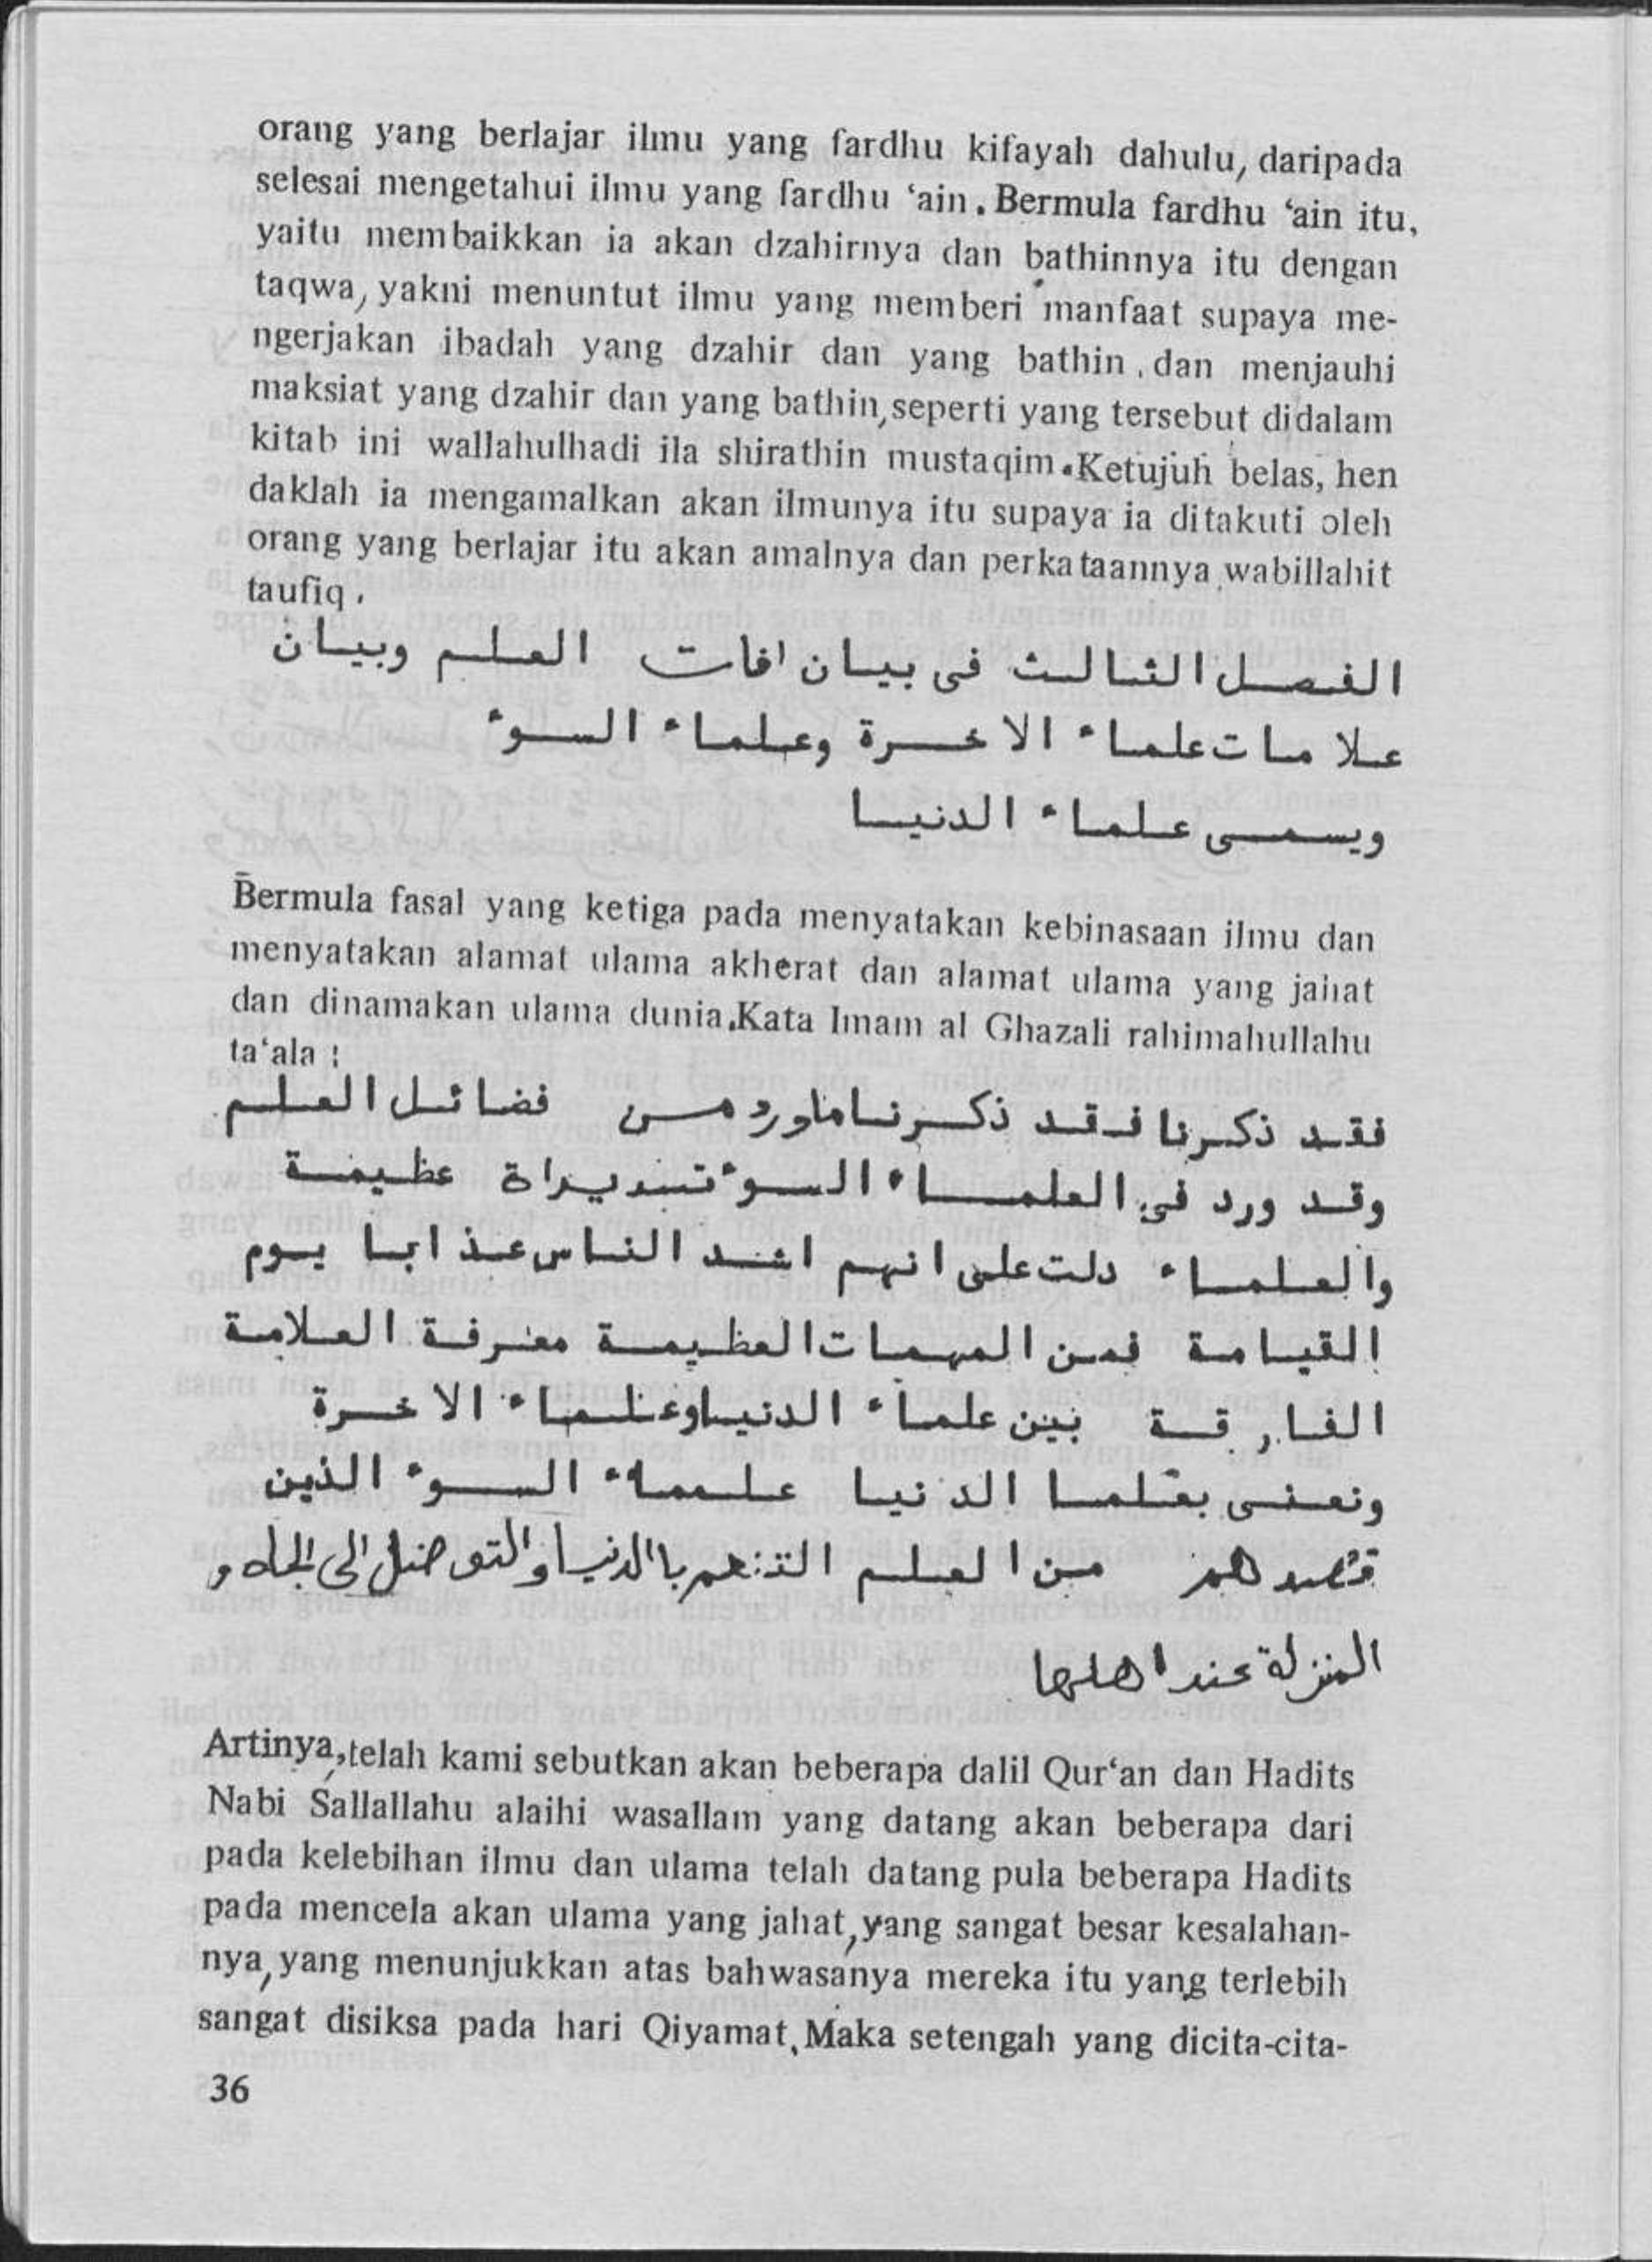 orang yang berlajar ilmu yang fardhu kifayah dahulu, daripada
selesai mengetahui ilmu yang fardhu ‘ain. Bermula fardhu ‘ain itu,
yaitu membaikkan ia akan dzahirnya dan bathinnya itu dengan
taqwa, yakni menuntut ilmu yang memberi manfaat supaya me-
ngerjakan ibadah yang dzahir dan yang bathin, dan menjauhi
maksiat yang dzahir dan yang bathin, seperti yang tersebut didalam
kitab ini wallahulhadi ila shirathin mustaqim. Ketujuh belas, hen
daklah ia mengamalkan akan ilmunya itu supaya ia ditakuti oleh
orang yang berlajar itu akan amalnya dan perkataannya wabillahit
taufiq.
الفصل الثالث فى بيان افات العلم وبيان
علامات علماء الاخرة وعلماء السوء
ويسمى علماء الدنيا
Bermula fasal yang ketiga pada menyatakan kebinasaan ilmu dan
menyatakan alamat ulama akherat dan alamat ulama yang jahat
dan dinamakan ulama dunia. Kata Imam al Ghazali rahimahullahu
ta‘ala :
فقد ذكرنا فقد ذكرنا ماورد من فضائل العلم
وقد ورد فى العلماء السوء عظيمة
والعلماء دلت على انهم اشد الناس عذابا يوم
القيامة فمن المهمات العظيمة معرفة العلامة
الفارقة بين علماء الدنيا وعلماء الاخرة
ونعنى بعلما الدنيا علماء السوء الذين
قصدهم من العلم التنعم باالدنيا والتوصل الى الجاه و
المنزلة عند اهلها
Artinya, telah kami sebutkan akan beberapa dalil Qur‘an dan Hadits
Nabi Sallallahu alaihi wasallam yang datang akan beberapa dari
pada kelebihan ilmu dan ulama telah datang pula beberapa Hadits
pada mencela akan ulama yang jahat, yang sangat besar kesalahan-
nya, yang menunjukkan atas bahwasanya mereka itu yang terlebih
sangat disiksa pada hari Qiyamat, Maka setengah yang dicita-cita-
36